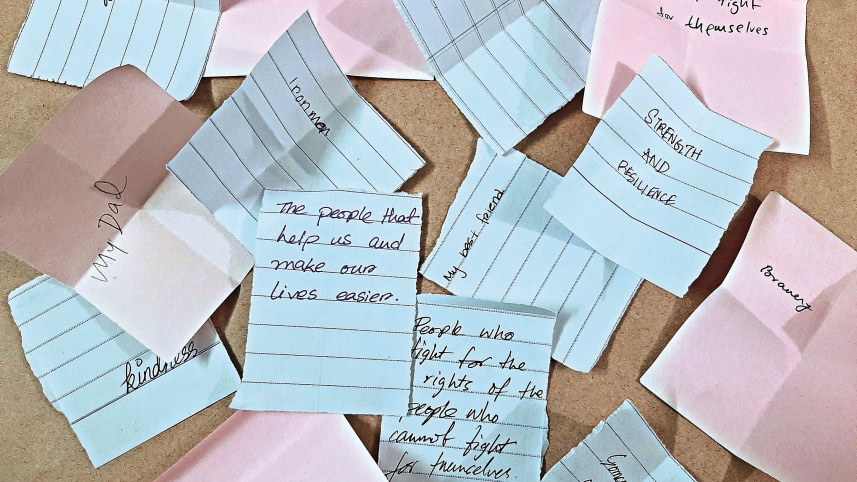 fight
for themselves
Ironman
STRENGTH
AND
RESILIENCE
My Dad
The people that
help us and
make our
lives easier.
My best friend
Bravery
kindness
People who
fight for the
rights of the
people who
cannot fight
for themselves.